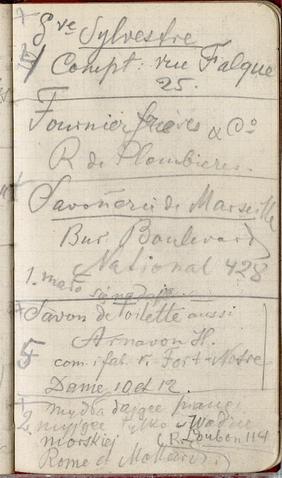 Gve Sylvestre
Compt: rue Falque
25.
Fournier frères & Co
R de Plombieres.
Savonnerie de Marseille
Bur Boulevard
National 428
1.
Savon de toilette aussi
5 Arnavon H.
com. fab. r. Fort-Notre
Dame 10 et 12.
mydła dające pianę
2 tylko
morskiej (R. Loubon 114
Rome et